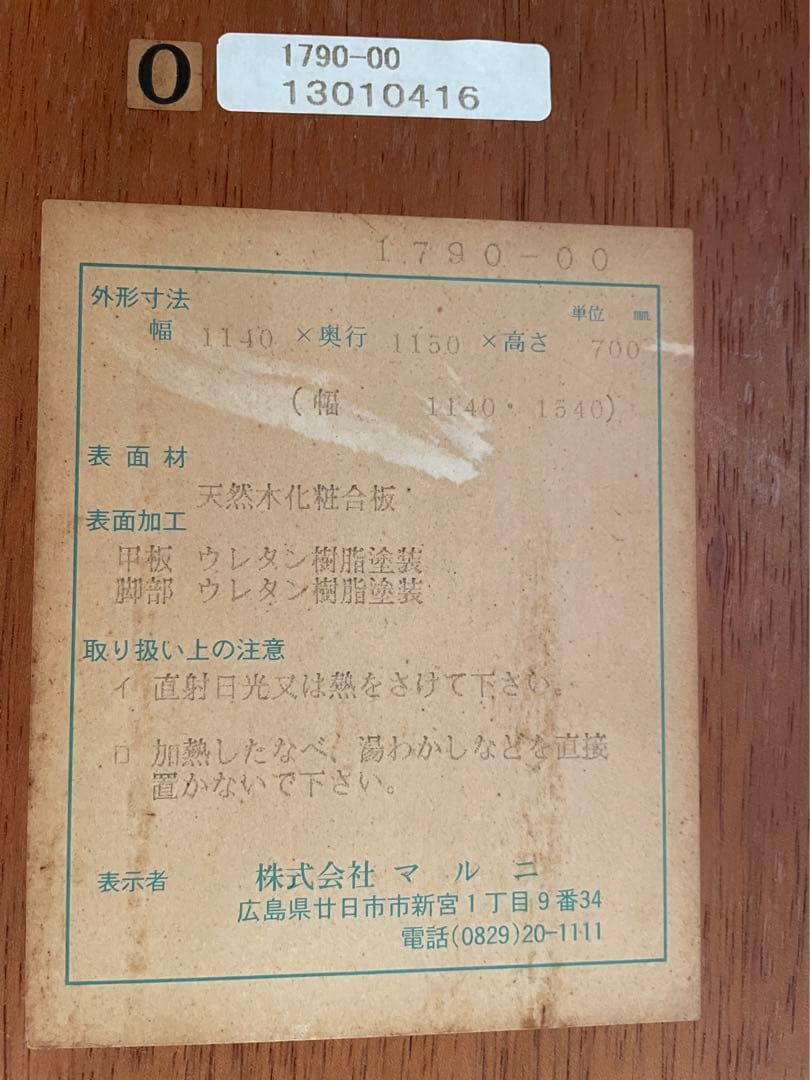 0
1790-00
13010416
1790-00
外形寸法
単位 ㎜
幅 1140 ×奥行 1150 ×高さ 700
(幅 1140・1540)
表面材
天然木化粧合板
表面加工
甲板 ウレタン樹脂塗装
脚部 ウレタン樹脂塗装
取り扱い上の注意
イ 直射日光又は熱をさけて下さい。
ロ 加熱したなべ、湯わかしなどを直接
置かないで下さい。
表示者 株式会社 マルニ
広島県廿日市市新宮1丁目9番34
電話(0829)20-1111